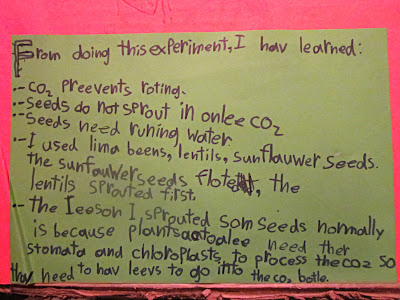 From doing this experiment, I hav learned:
-- CO2 preevents roting.
-- Seeds do not sprout in onlee CO2
-- Seeds need runing water.
-- I used lima beens, lentils, sunflauwer seeds.
the sunfauwer seeds flote, the
lentils sprouted first.
-- the Ieeson I, sprouted som seeds normally
is because plants actoalee need ther
stomata and chloroplasts, to process the co2 so
thay need to hav leevs to go into the co2 botle.